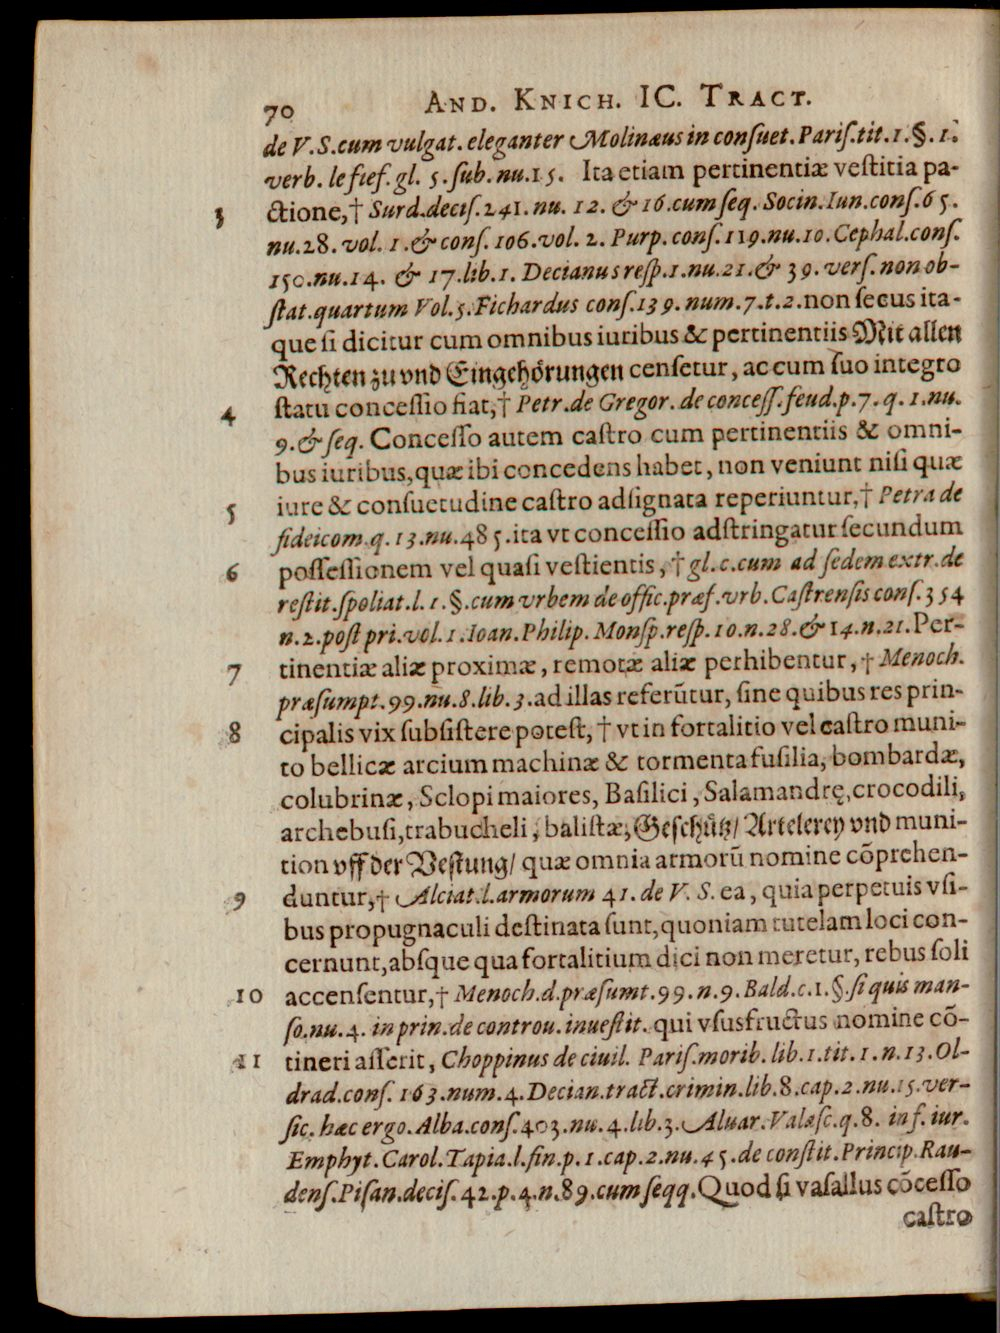 70 AND. KNICH. IC. TRACT.
de V.S.cum vulgat. eleganter Molinæus in conſuet. Pariſ.tit.1.§.1.
verb. le fief.gl. 5.ſub.nu.15. Ita etiam pertinentiæ veſtitia pa-
3 ctione,† Surd.deciſ.241.nu. 12. & 16.cum ſeq. Socin.Iun.conſ.65.
nu.28. vol. 1.& conſ. 106.vol. 2. Purp. conſ.119.nu.10. Cephal.conſ.
150.nu.14. & 17.lib.1. Decianus reſp.1.nu.21.& 39. verſ. non ob-
ſtat.quartum Vol.5.Fichardus conſ.139.num.7.t.2.non ſecus ita-
que ſi dicitur cum omnibus iuribus & pertinentiis Mit allen
Rechten zu vnd Eingehörungen cenſetur, ac cum ſuo integro
4 ſtatu conceſſio fiat,† Petr.de Gregor. de conceſſ.feud.p.7.q.1.nu.
9.& ſeq. Conceſſo autem caſtro cum pertinentiis & omni-
bus iuribus,quæ ibi concedens habet, non veniunt niſi quæ
5 iure & conſuetudine caſtro adſignata reperiuntur,† Petra de
fideicom.q.13.nu.485.ita vt conceſſio adſtringatur ſecundum
6 poſſeſſionem vel quaſi veſtientis, † gl.c.cum ad ſedem extr.de
reſtit.ſpoliat.l.1.§.cum vrbem de offic.præf.vrb.Caſtrenſis conſ.354
n.2.poſt pri.vol.1.Ioan.Philip. Monſp.reſp.10.n.28.& 14.n.21.Per-
7 tinentiæ aliæ proximæ, remotæ aliæ perhibentur, † Menoch.
præſumpt.99.nu.8.lib.3.ad illas referūtur, ſine quibus res prin-
8 cipalis vix ſubſiſtere poteſt, † vt in fortalitio vel caſtro muni-
to bellicæ arcium machinæ & tormenta fuſilia, bombardæ,
colubrinæ, Sclopi maiores, Baſilici, Salamandrę,crocodili,
archebuſi,trabucheli, baliſtæ, Geſchütz/ Artelerey vnd muni-
tion vff der Veſtung/ quæ omnia armorū nomine cōprehen-
9 duntur,† Alciat.l.armorum 41. de V. S. ea, quia perpetuis vſi-
bus propugnaculi deſtinata ſunt,quoniam tutelam loci con-
cernunt,abſque qua fortalitium dici non meretur, rebus ſoli
10 accenſentur,† Menoch.d.præſumt.99.n.9.Bald.c.1.§.ſi quis man-
ſo.nu.4. in prin.de controu.inueſtit. qui vſusfructus nomine cō-
11 tineri aſſerit, Choppinus de ciuil. Pariſ.morib.lib.1.tit.1.n.13.Ol-
drad.conſ. 163.num.4.Decian.tract.crimin.lib.8.cap.2.nu.15.ver-
ſic.hæc ergo.Alba.conſ.403.nu.4.lib.3.Aluar.Valaſc.q.8. in f. iur.
Emphyt.Carol.Tapia.l.fin.p.1.cap.2.nu.45.de conſtit.Princip.Rau-
denſ.Piſan.deciſ.42.p.4.n.89.cum ſeqq.Quod ſi vaſallus cōceſſo
caſtro